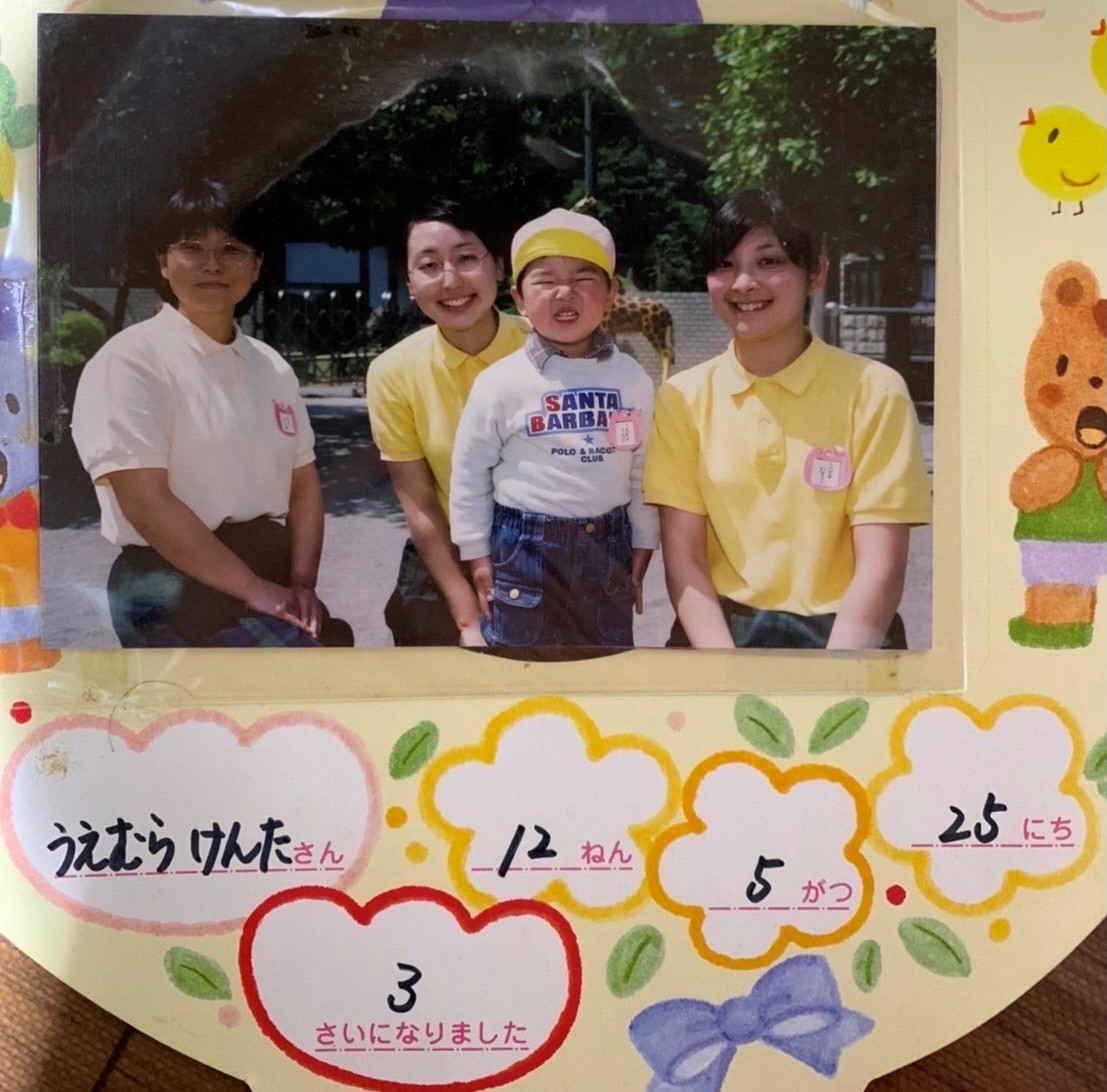 SANTA
BARBA
POLO & RACQ
CLUB
うえむら けんたさん
12 ねん
5 がつ
25 にち
3
さいになりました